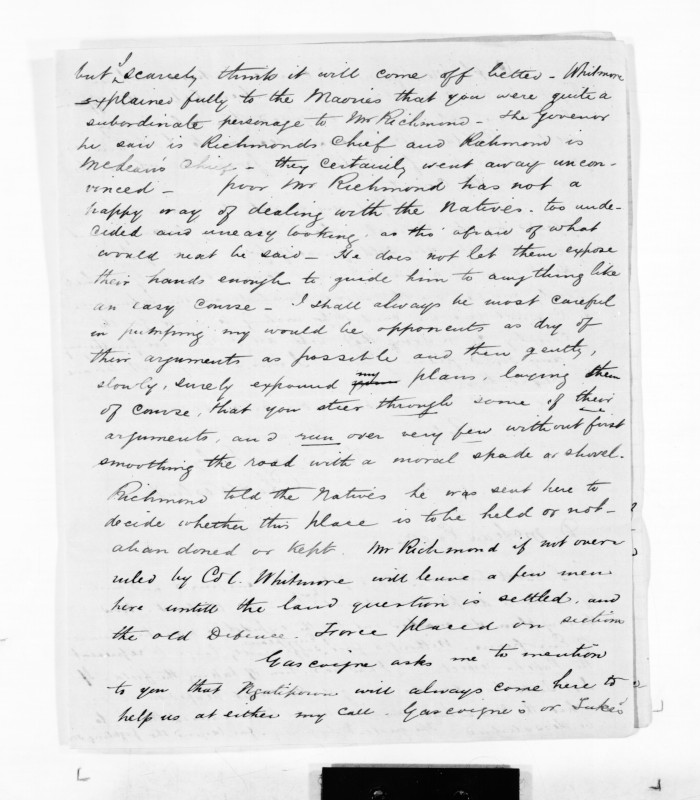 but I scarcely think it will come off better - Whitmore
explained fully to the Maories that you were quite a
subordinate personage to Mr Richmond - The Govenor
he said is Richmonds Chief and Richmond is
McLean's Chief - they certainly went away uncon-
vinced - poor Mr Richmond has not a
happy way of dealing with the Natives. too unde-
cided and uneasy looking, as tho' afraid of what
would next be said - He does not let them expose
their hands enough to guide him to anything like
an easy course - I shall always be most careful
in pumping my would be opponents as dry of
their arguments as possible and then gently,
slowly, surely expound my plans, laying them
of course, that you steer through some of their
arguments, and run over very few without first
smoothing the road with a moral spade or shovel.
Richmond told the Natives he was sent here to
decide whether this place is to be held or not -
abandoned or kept. Mr Richmond if not over-
ruled by Col. Whitmore will leave a few men
here untill the land question is settled, and
the old Defence Force placed on section
Gascoigne asks me to mention
to you that Ngatiporou will always come here to
help us at either my call. Gascoigne's or Tuke's